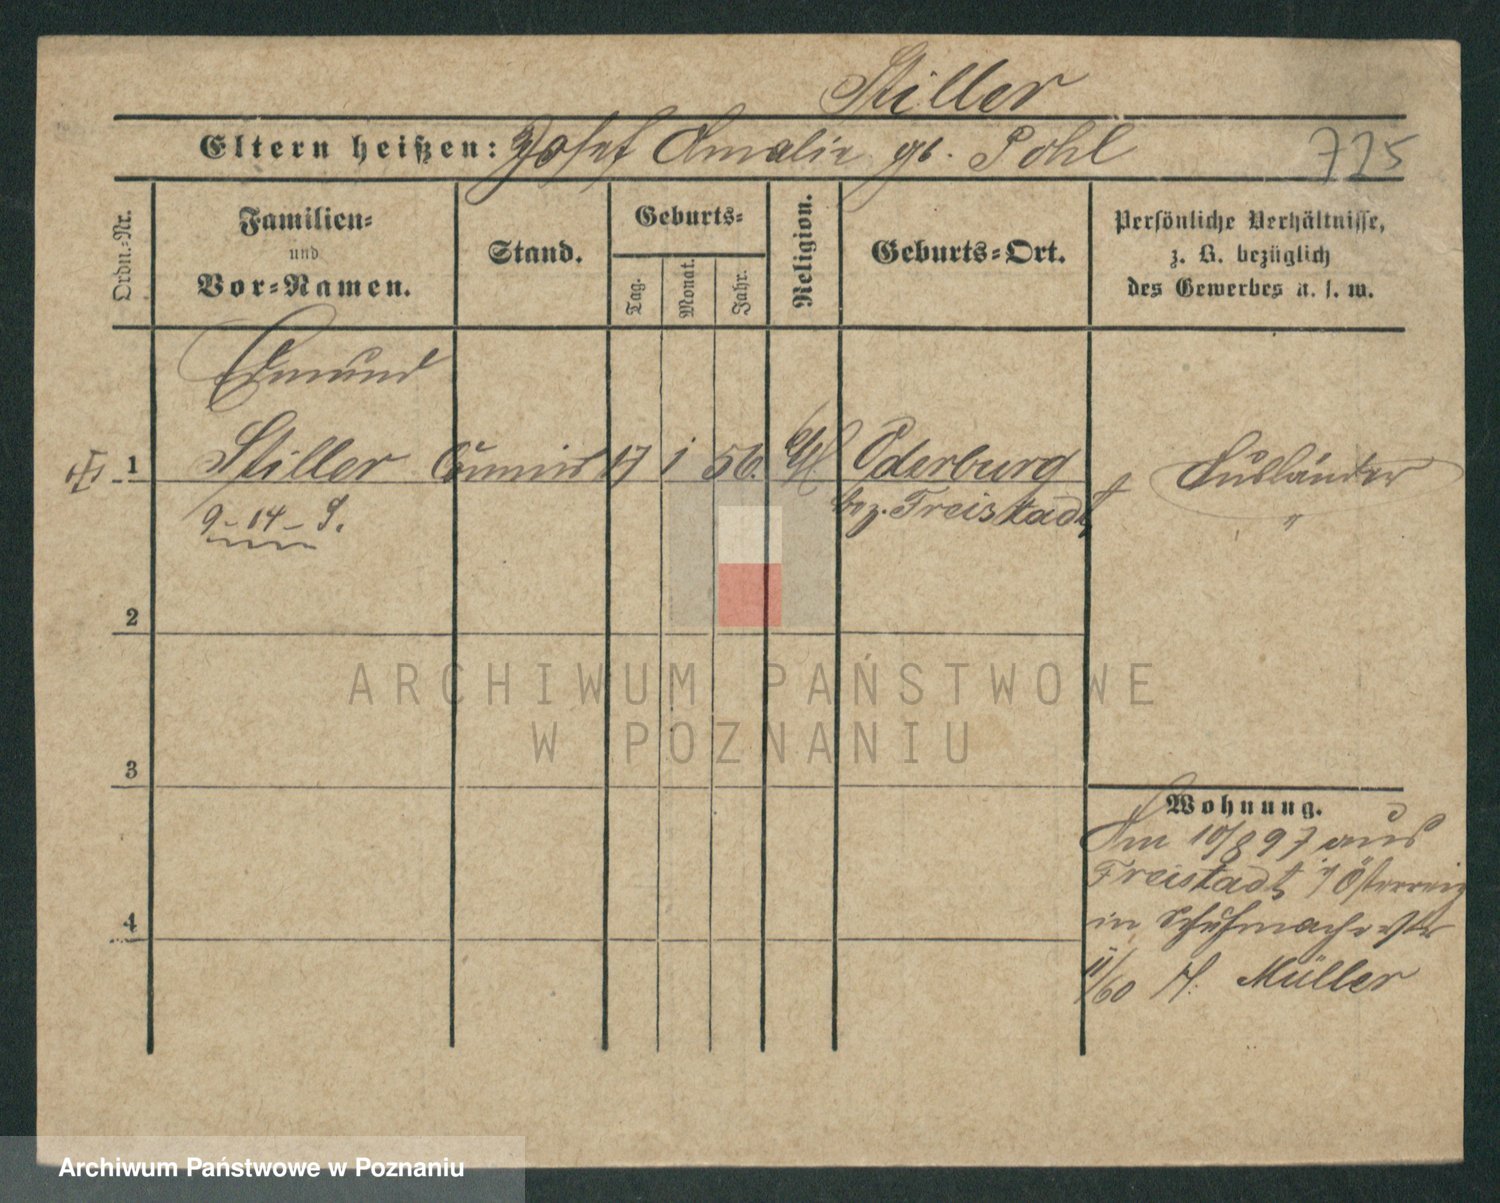 Stiller
Eltern heißen: Josef Amalie gb. Pohl
725
Ordn.-Nr.
Familien-
und
Vor-Namen.
Stand.
Geburts-
Tag.
Monat.
Jahr.
Religion.
Geburts-Ort.
Persönliche Verhältnisse,
z. B. bezüglich
des Gewerbes u. s. w.
Edmund
1 Stiller Commis 17 1 56. Oderburg Ausländer
9-14-9.
bez. Freistadt "
2
3
4
Wohnung.
Am 10/8 97 aus
Freistadt i/ Österreich
in Schuhmacherstr
11/60 Müller
ARCHIWUM PAŃSTWOWE
W POZNANIU
Archiwum Państwowe w Poznaniu